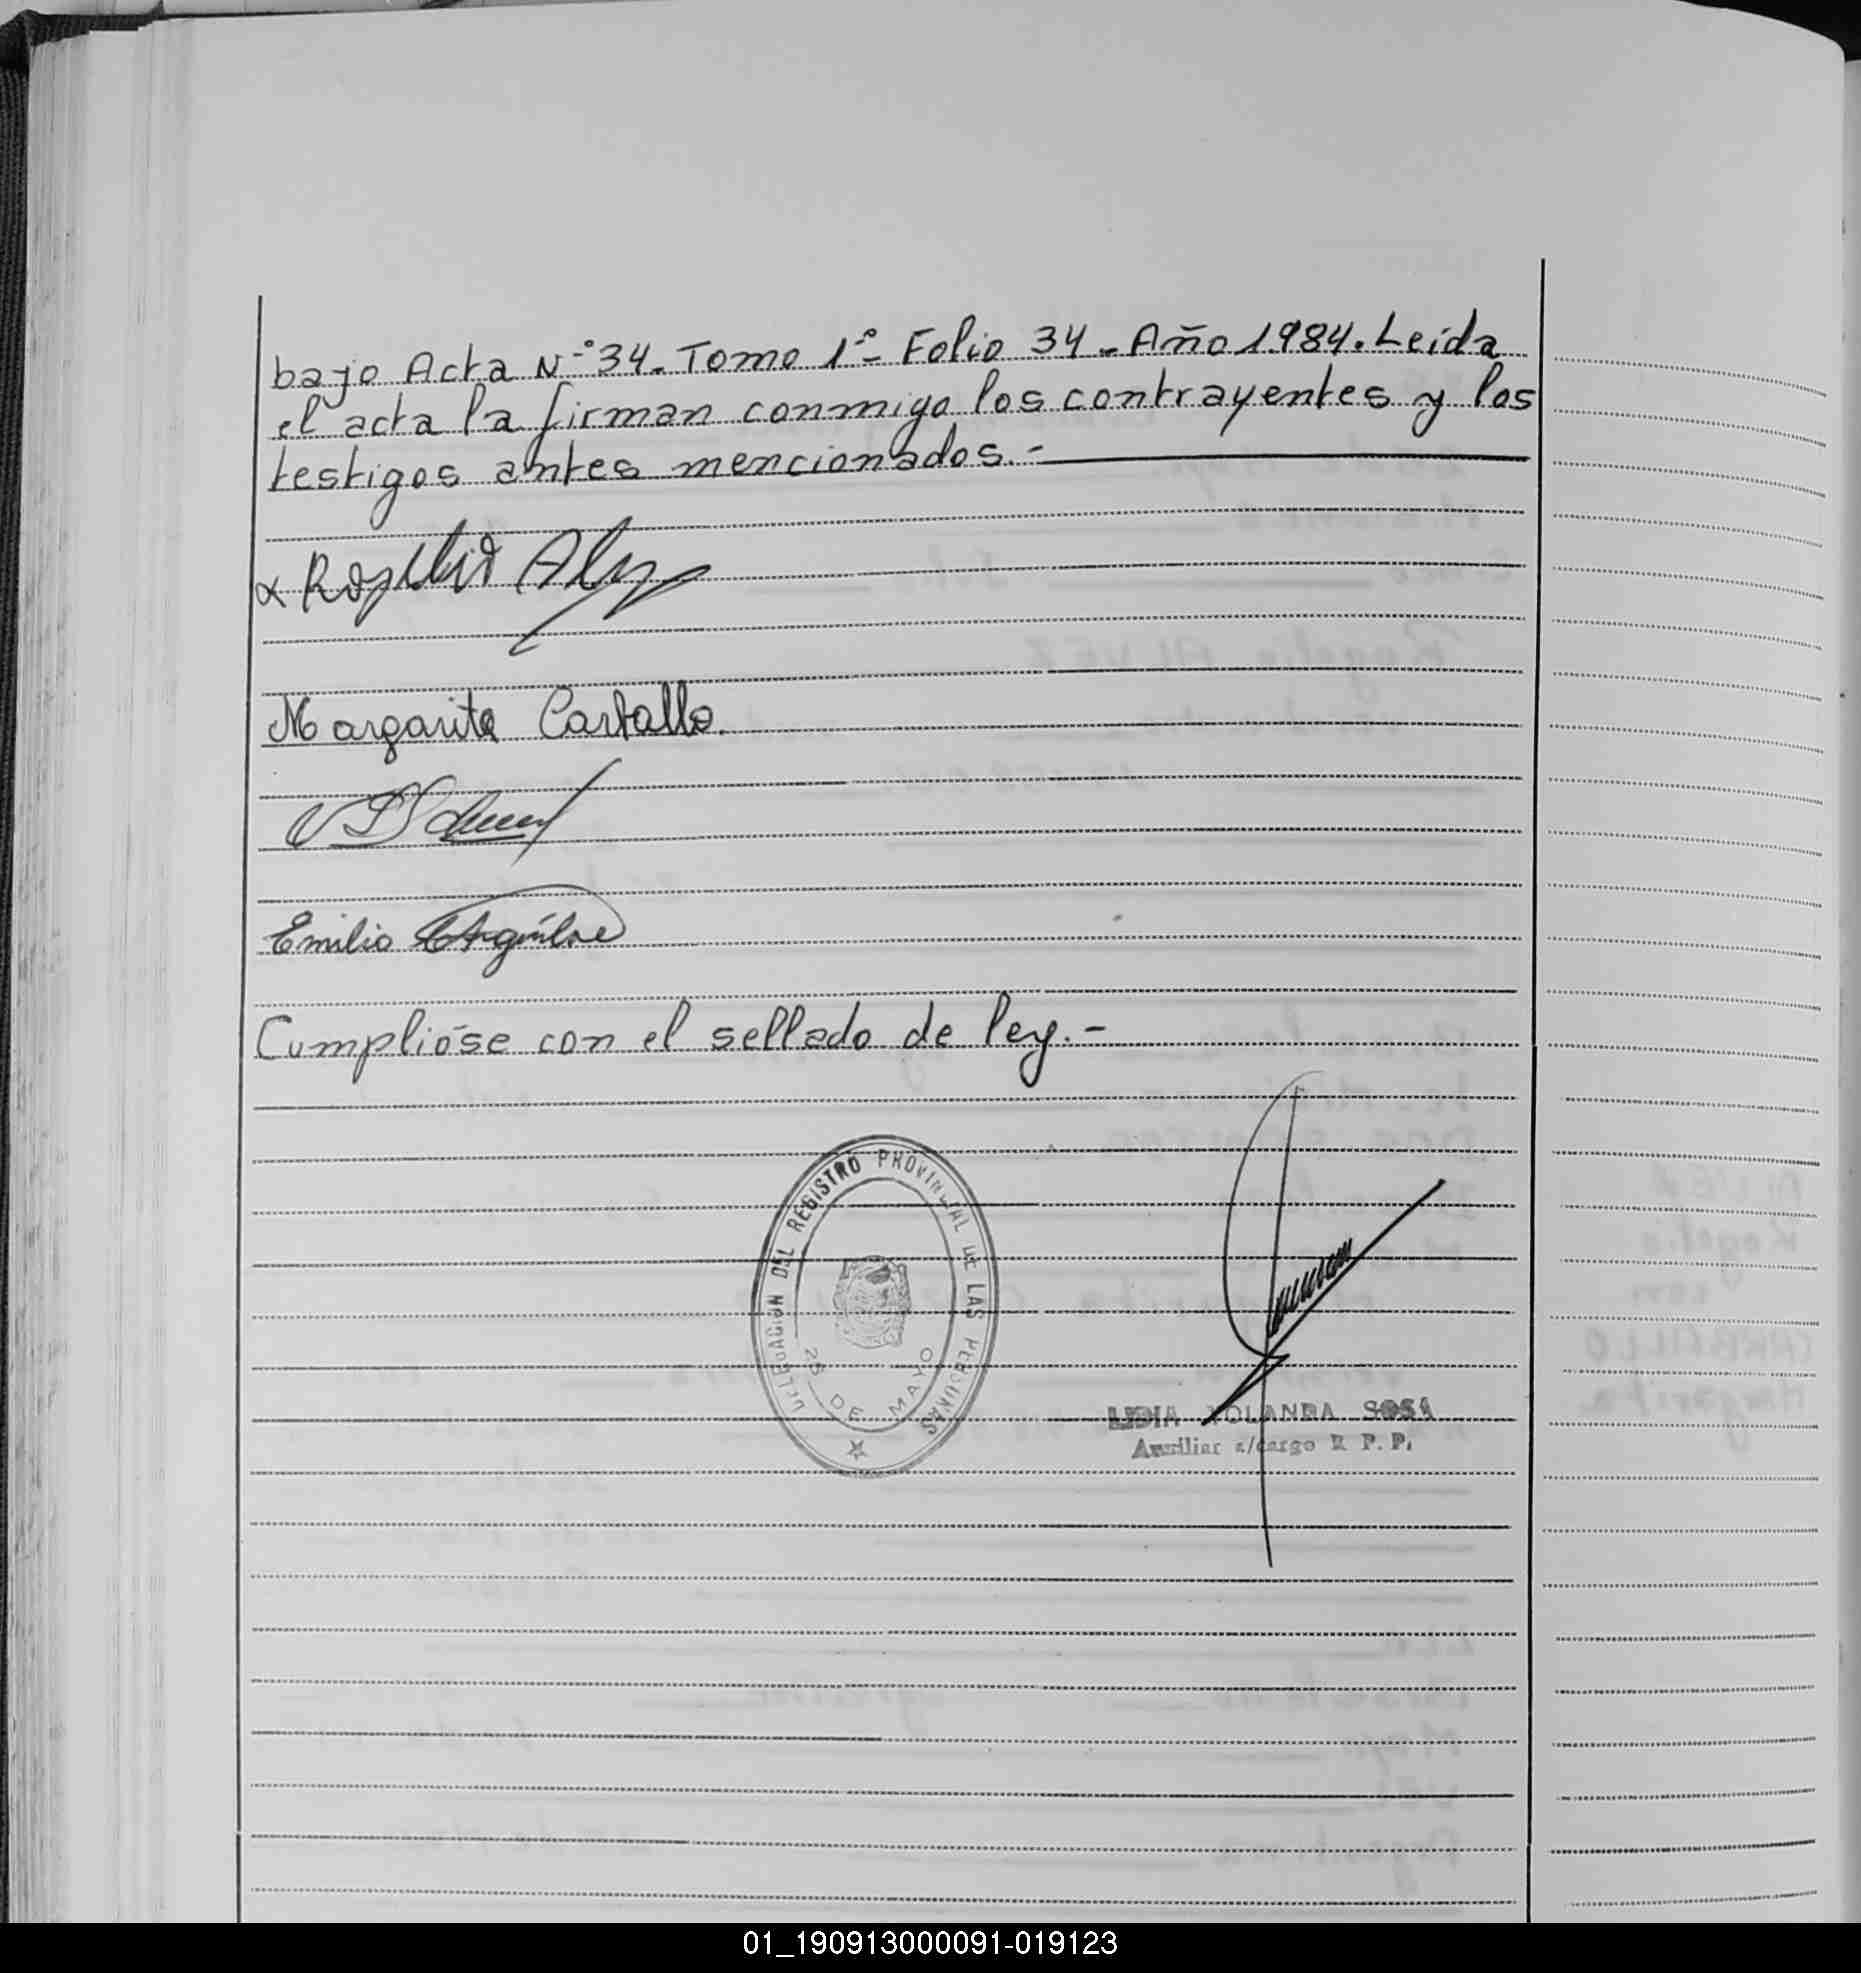 bajo Acta N-°34. Tomo 1°- Folio 34 - Año 1984. Leída
el acta la firman conmigo los contrayentes y los
testigos antes mencionados.-
x Rogelio
Margarita Carballo.
Emilio
Cumplióse con el sellado de ley.-
DELEGACION DEL REGISTRO PROVINCIAL DE LAS PERSONAS
25 DE MAYO
LIDIA YOLANDA SOSA
Auxiliar a/cargo R P. P.
01_190913000091-019123